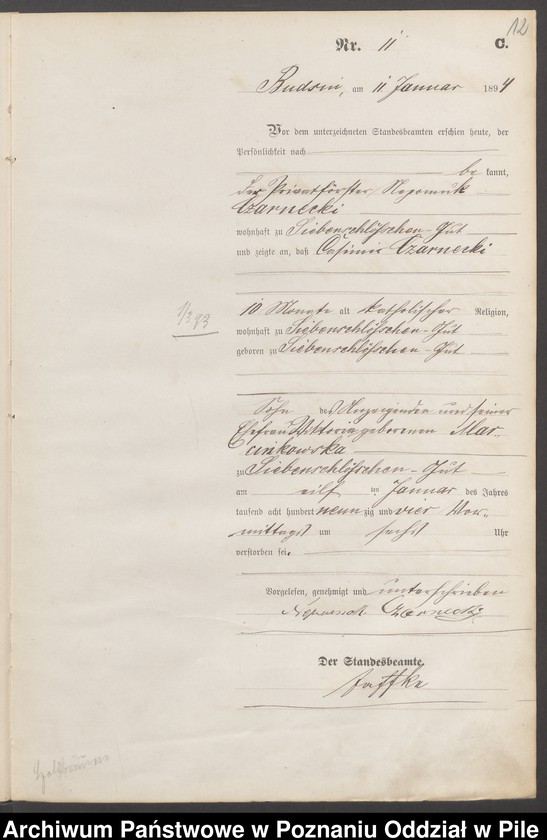 12
Nr. 11 C.
Budsin, am 11 Januar 1894
Vor dem unterzeichneten Standesbeamten erschien heute, der
Persönlichkeit nach
be kannt,
der Privatförster Nepomuk
Czarnecki
wohnhaft zu Siebenschlößchen-Gut
und zeigte an, daß Casimir Czarnecki
10 Monate alt katholischer Religion,
1/3.93
wohnhaft zu Siebenschlößchen-Gut
geboren zu Siebenschlößchen-Gut
Sohn des Anzeigenden und seiner
Ehefrau Wittoria geborenen Mar-
cinkowska
zu Siebenschlößchen-Gut
am eilf ten Januar des Jahres
tausend acht hundert neun zig und vier Vor-
mittags um sechs Uhr
verstorben sei.
Vorgelesen, genehmigt und unterschrieben
Nepomuk Czarnecki
Der Standesbeamte.
Jaffke
Archiwum Państwowe w Poznaniu Oddział w Pile